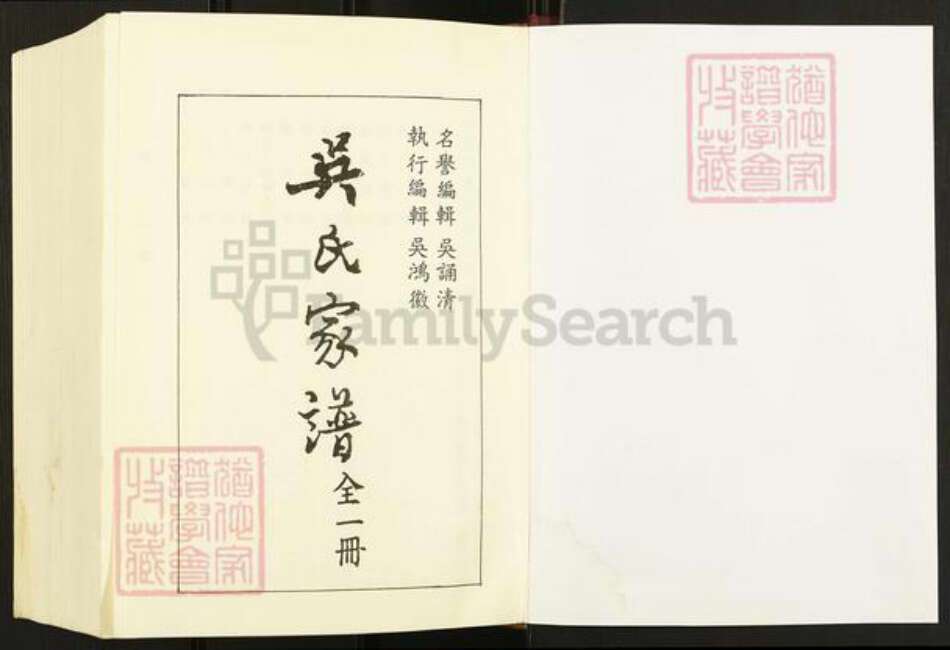 名譽編輯 吳誦清
執行編輯 吳鴻徽
吳氏家譜全一冊
猶他家
譜學會
收藏
猶他家
譜學會
收藏
FamilySearch